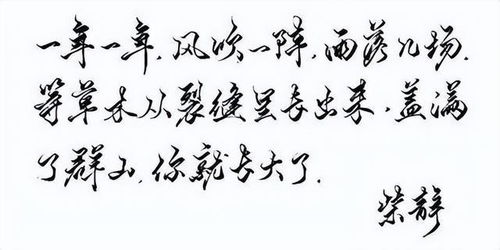 一年一年，风吹一阵，雨落几场.
等草木从裂缝里长出来，盖满
了群山，你就长大了.
柴静